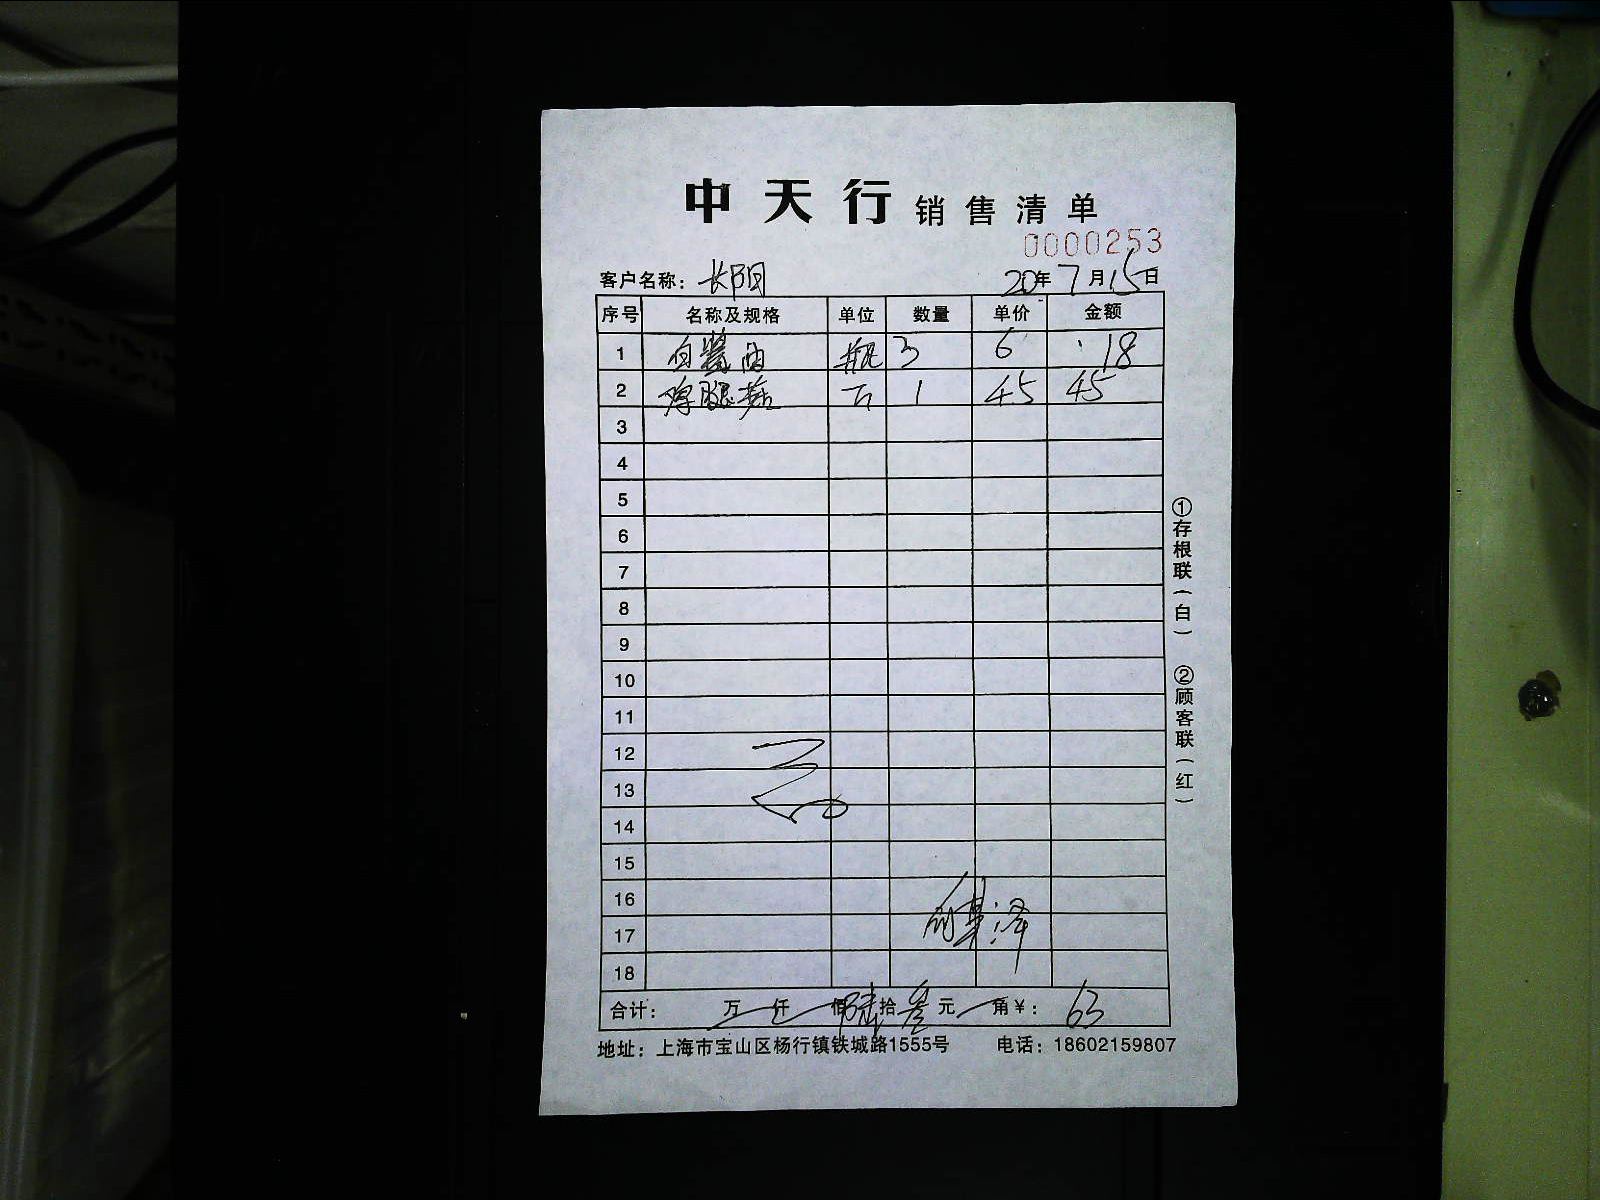 中天行 销售清单
0000253
客户名称：长阳 20年7月15日
序号 名称及规格 单位 数量 单价 金额
1 白酱油 瓶 3 6 18
2 鸡腿菇 1 45 45
3
4
5
6
7
8
9
10
11
12
13
14
15
16
17
18
合计： 万 仟 佰 陆 拾 叁 元 角 ￥：63
地址：上海市宝山区杨行镇铁城路1555号 电话：18602159807
①存根联（白）
②顾客联（红）